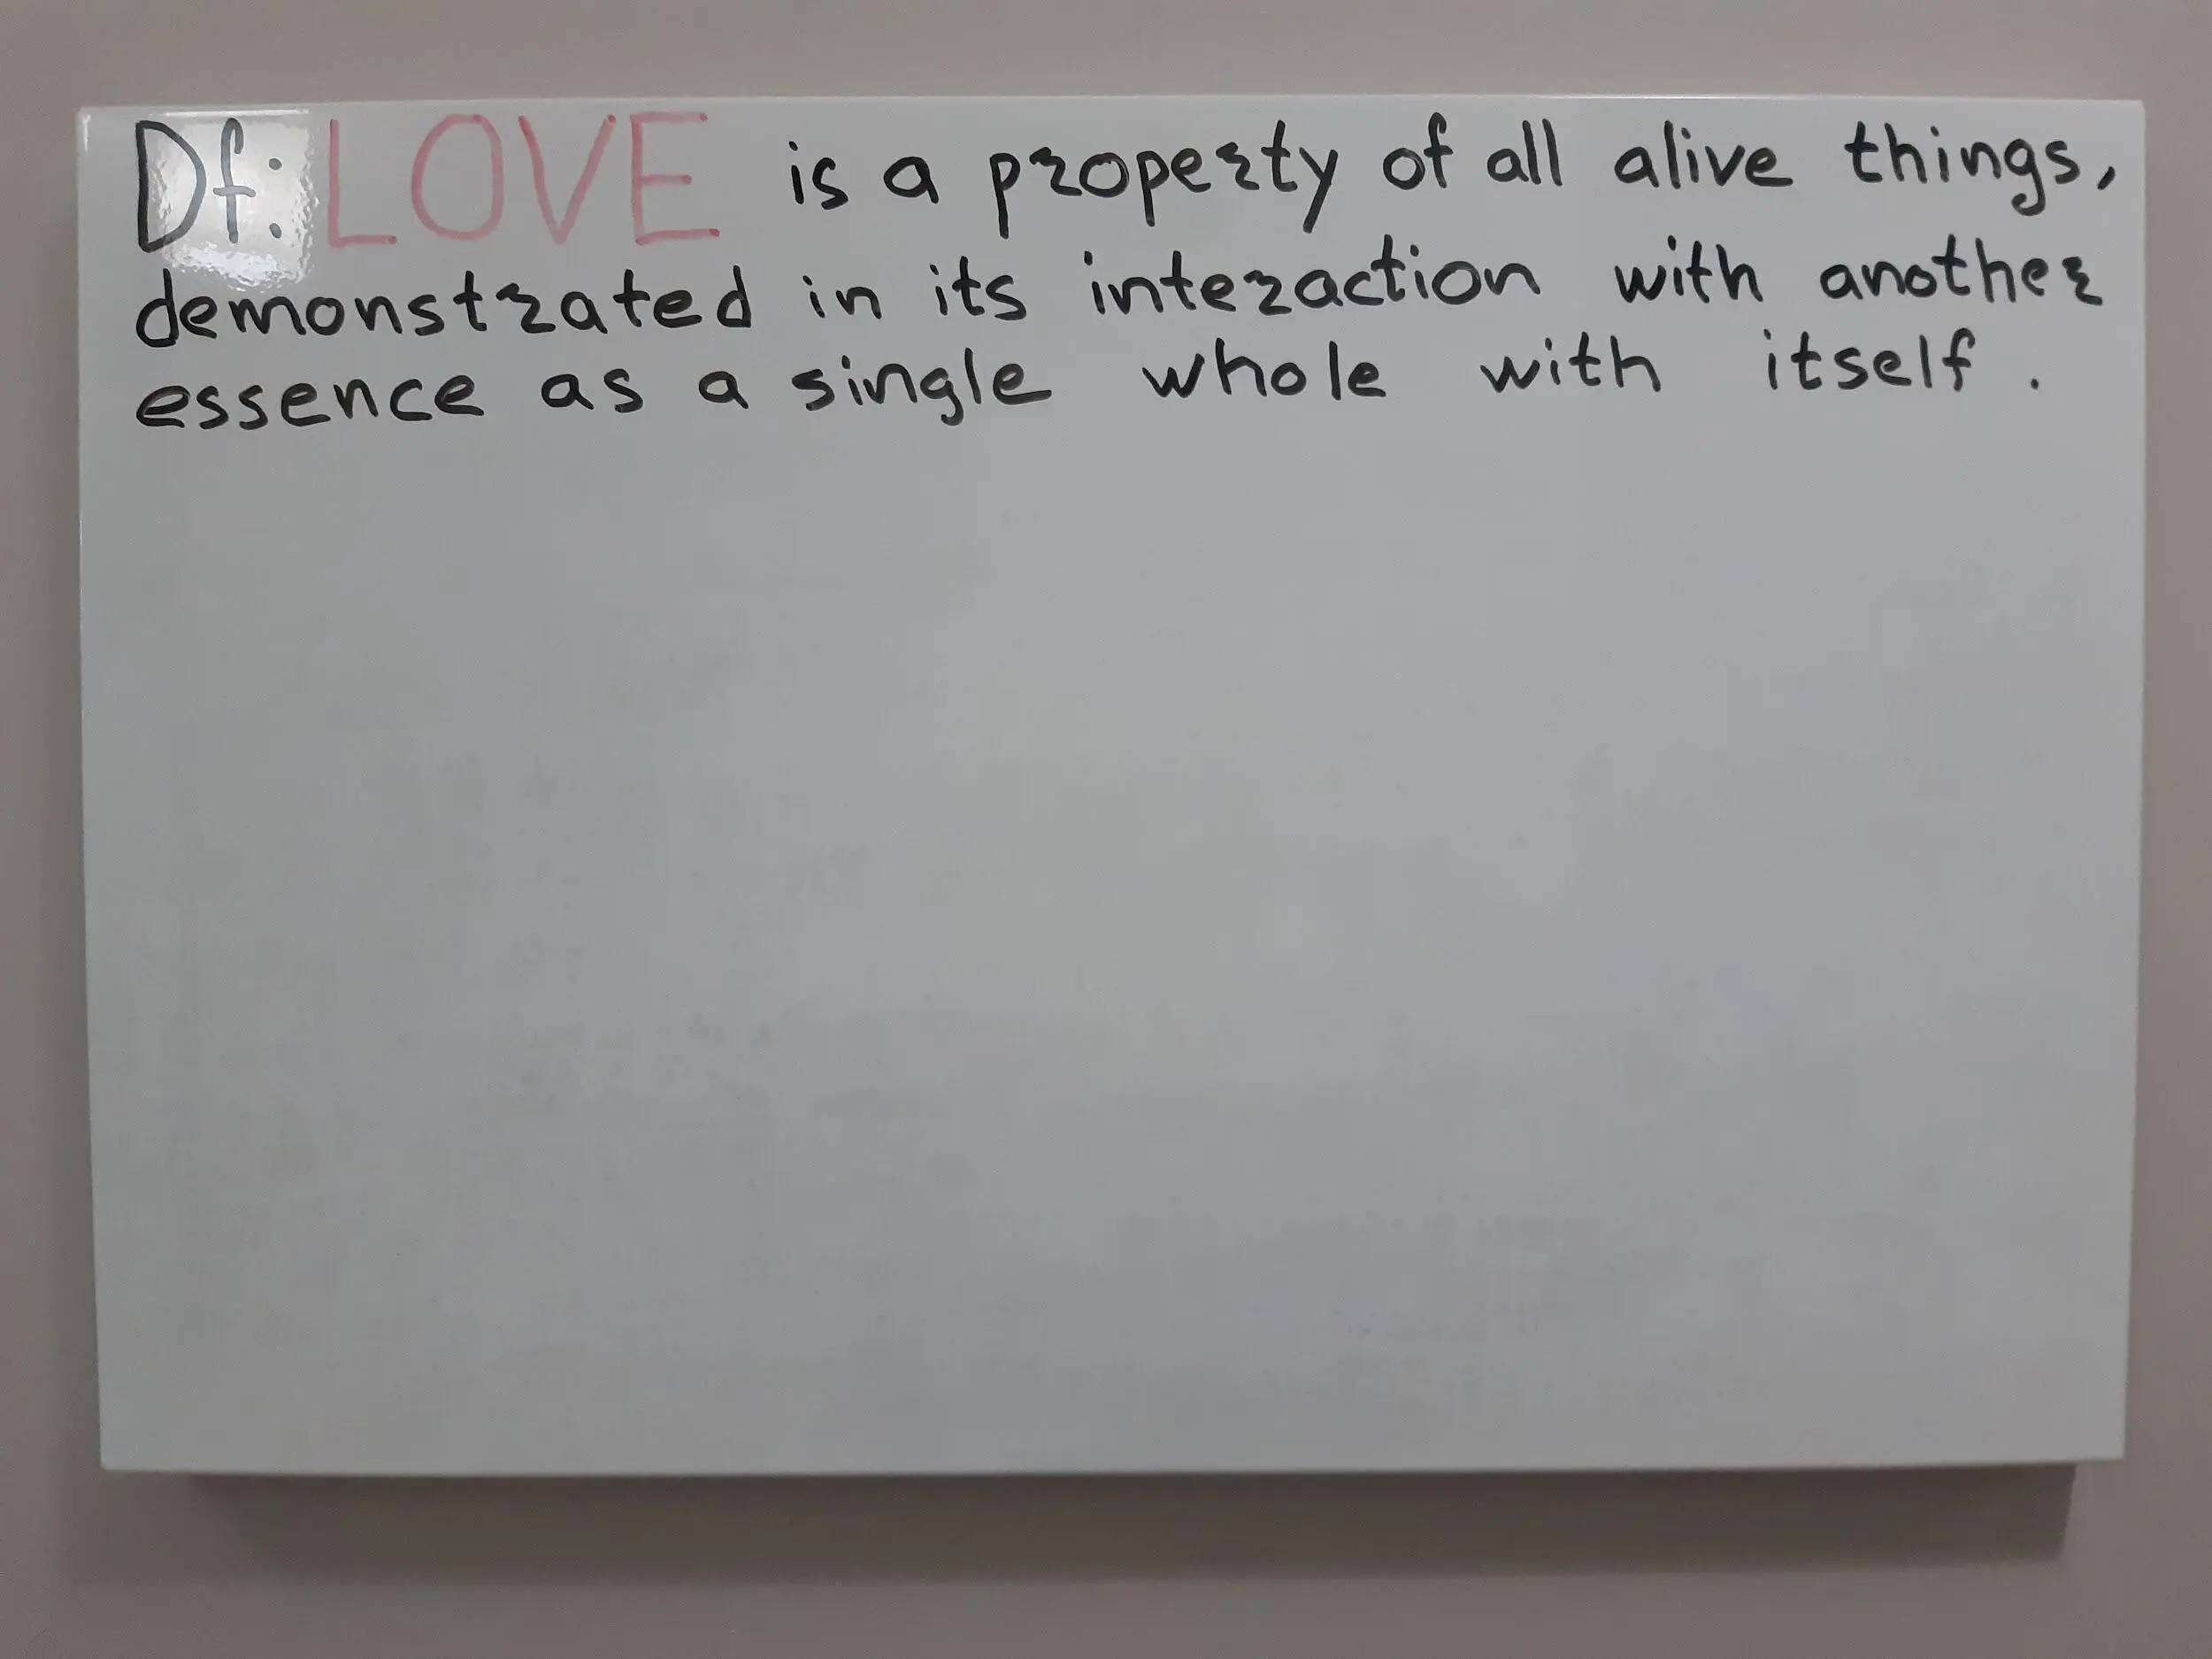 Df: LOVE is a property of all alive things,
demonstrated in its interaction with another
essence as a single whole with itself.